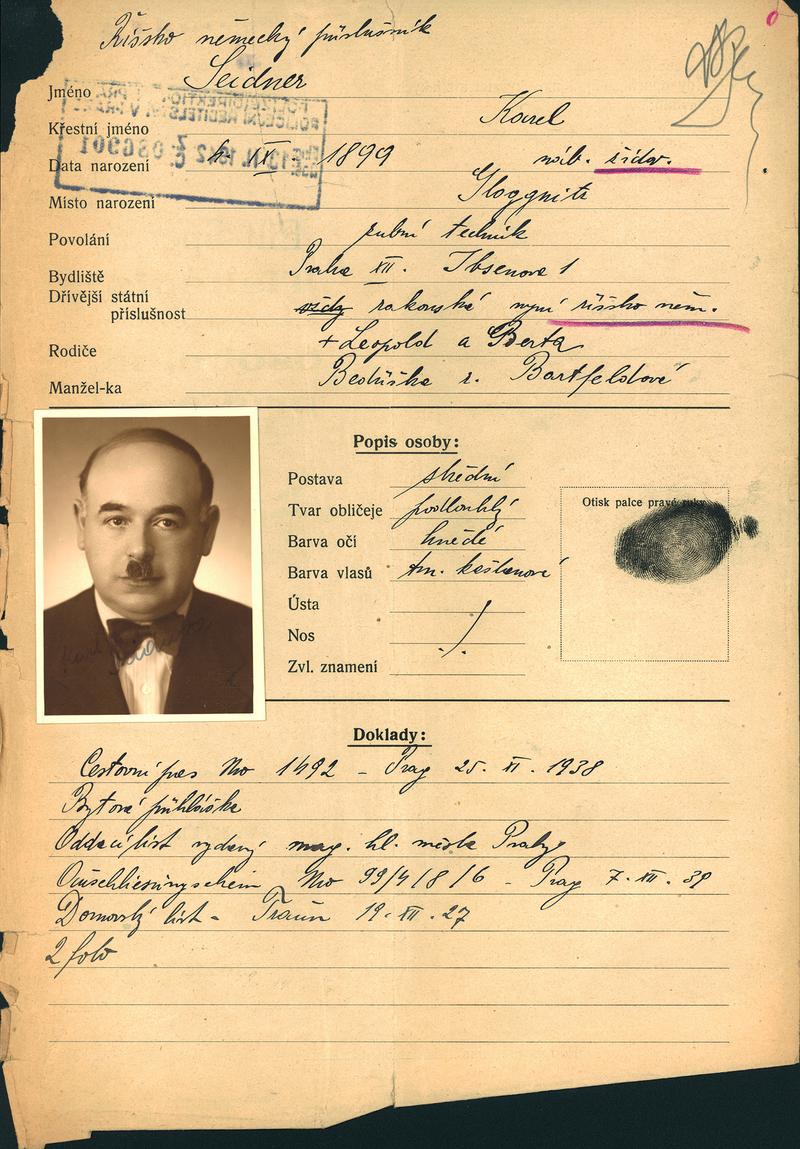 Říšsko německý příslušník
Jméno Seidner
Křestní jméno Karel
Data narození XI 1899 náb. židov.
Místo narození Gloggnitz
Povolání zubní technik
Bydliště Praha XII. Ibsenova 1
Dřívější státní
příslušnost rakouská nyní říšsko něm.
Rodiče + Leopold a Berta
Manžel-ka Bedřiška r. Bartfeldové
Popis osoby:
Postava střední
Tvar obličeje podlouhlý
Otisk palce pravé ruky
Barva očí hnědé
Barva vlasů tm. kaštanové
Ústa
Nos
Zvl. znamení
Doklady:
Cestovní pas No 1492 – Prag 25. XI. 1938
Bytová přihláška
Oddací list vydaný mag. hl. města Prahy
No 99/4/8/6 – Prag 7. XII. 39
Domovský list – Traun 19. XII. 27
2 foto